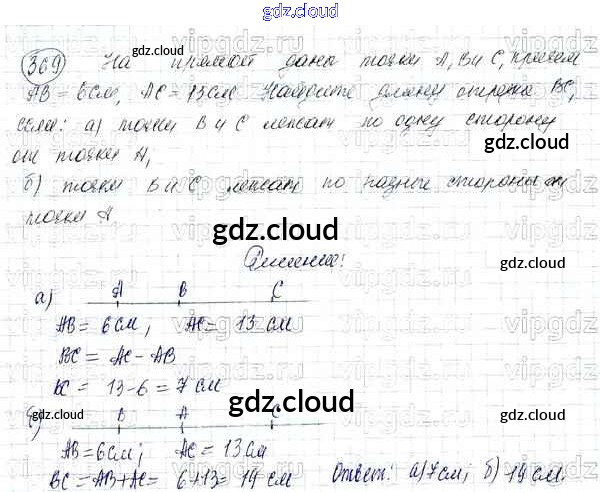 gdz.cloud
369 На прямой даны точки А, В и С, причем
gdz.cloud
АВ = 6 см, АС = 13 см Найдите длину отрезка ВС,
если: а) точки В и С лежат по одну сторону
от точки А,
gdz.cloud
б) точки В и С лежат по разные стороны от
точки А
gdz.cloud
Решение:
gdz.cloud
а) А В С
АВ = 6 см, АС = 13 см
ВС = АС - АВ
ВС = 13 - 6 = 7 см
gdz.cloud
gdz.cloud
б) В А С
АВ = 6 см; АС = 13 см
gdz.cloud
ВС = АВ + АС = 6 + 13 = 19 см Ответ: а) 7 см; б) 19 см.